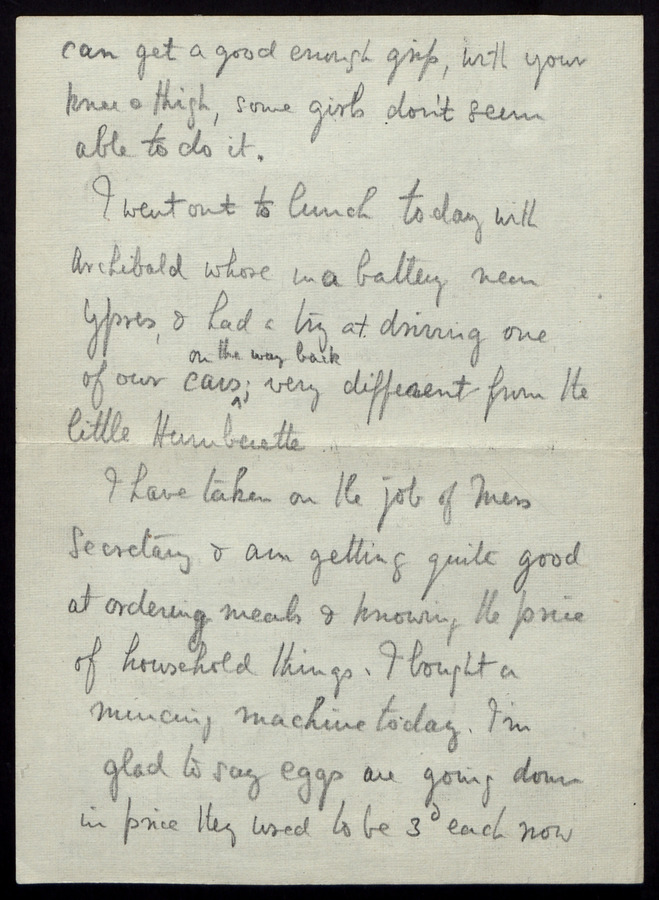 can get a good enough grip, with your
knee & thigh, some girls don't seem
able to do it.
I went out to lunch today with
Archibald whose in a battery near
Ypres, & had a try at driving one
on the way back
of our cars; very different from the
little Humberette
I have taken on the job of Mess
Secretary & am getting quite good
at ordering meals & knowing the price
of household things. I bought a
mincing machine today. I'm
glad to say eggs are going down
in price they used to be 3d each now